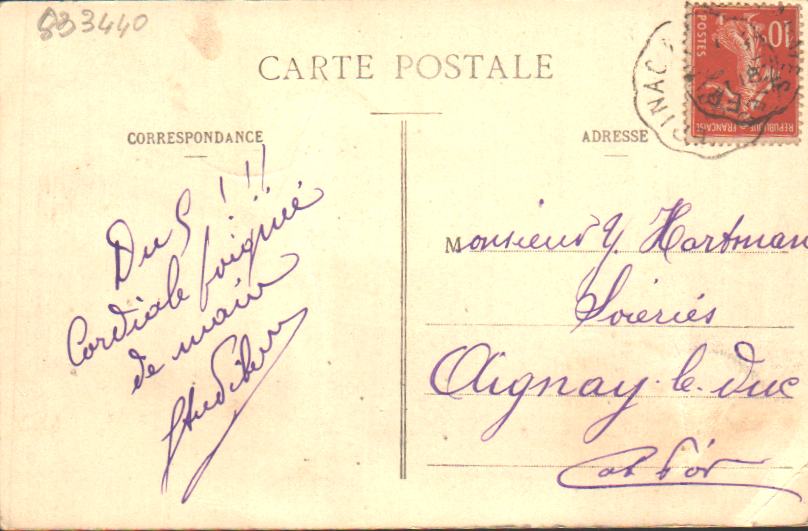 883440
CARTE POSTALE
CORRESPONDANCE
ADRESSE
10
POSTES
REPUBLIQUE FRANÇAISE
EPINAC
Du 5 !!!
Cordiale poignée
de main
Monsieur Y. Hartman
Soieries
Aignay-le-Duc
Côte d'or